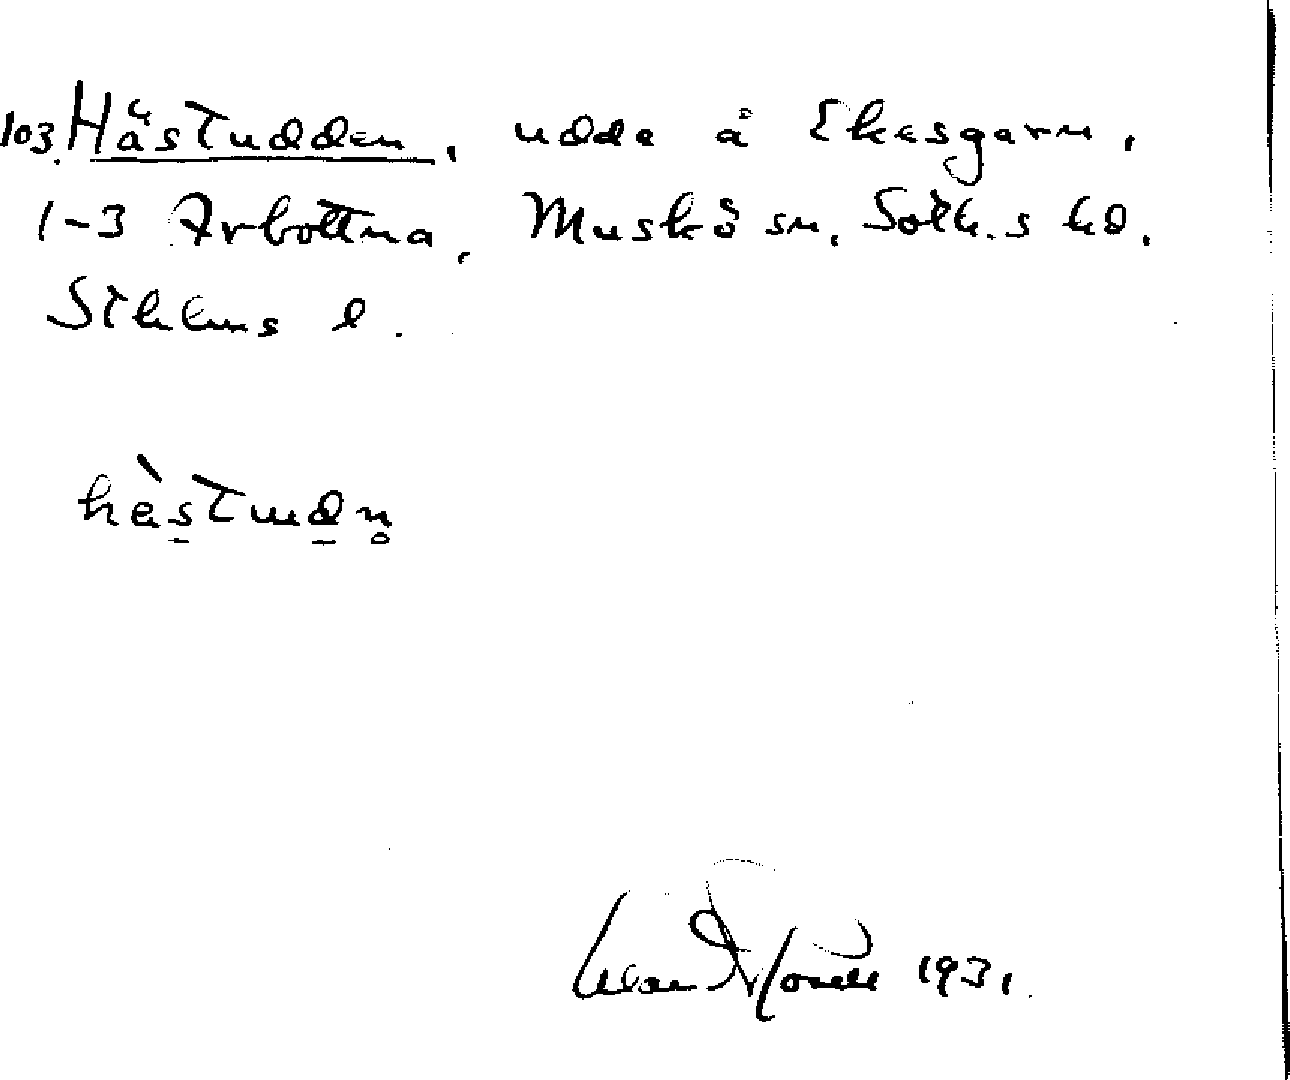 103. Hästudden, udde å Ekasgarn,
1-3 Arbottna, Muskö sn, Soth.s hd,
Sthlms l.
hàstudn̥
1931.